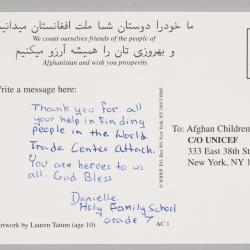 ما خودرا دوستان شما ملت افغانستان میدانیم
We count ourselves friends of the people of
و بهروزی تان را همیشه آرزو میکنیم
Afghanistan and wish you prosperity.
Write a message here:
Thank you for all
your help in finding
people in the World
Trade Center Attack.
You are heroes to us
all. God Bless
Danielle
Holy Family School
Grade 7
To: Afghan Children
C/O UNICEF
333 East 38th S
New York, NY 1
Artwork by Lauren Tatum (age 10)
AC 1